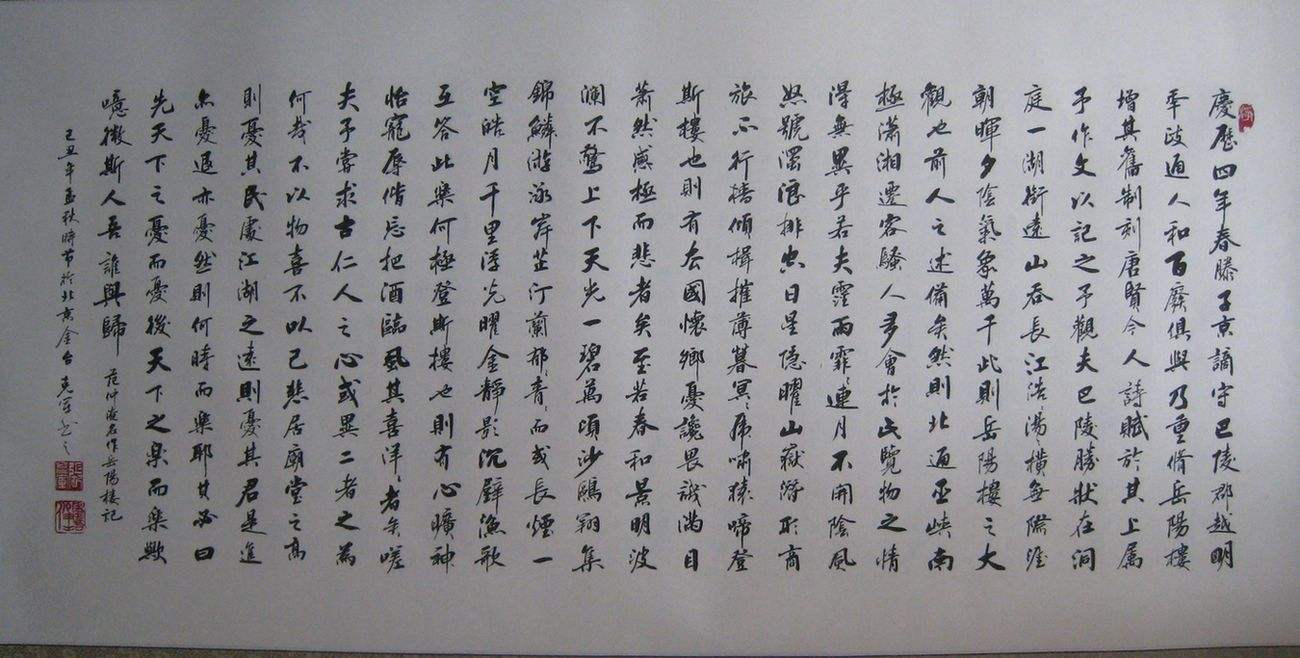 慶歷四年春滕子京謫守巴陵郡越明
年政通人和百廢俱興乃重脩岳陽樓
增其舊制刻唐賢今人詩賦於其上屬
予作文以記之予觀夫巴陵勝狀在洞
庭一湖銜遠山吞長江浩、湯、橫無際涯
朝暉夕陰氣象萬千此則岳陽樓之大
觀也前人之述備矣然則北通巫峽南
極瀟湘遷客騷人多會於此覽物之情
得無異乎若夫霪雨霏、連月不開陰風
怒號濁浪排空日星隱曜山嶽潛形商
旅不行檣傾楫摧薄暮冥、虎嘯猿啼登
斯樓也則有去國懷鄉憂讒畏譏滿目
蕭然感極而悲者矣至若春和景明波
瀾不驚上下天光一碧萬頃沙鷗翔集
錦鱗游泳岸芷汀蘭郁、青、而或長煙一
空皓月千里浮光曜金靜影沉璧漁歌
互答此樂何極登斯樓也則有心曠神
怡寵辱偕忘把酒臨風其喜洋、者矣嗟
夫予嘗求古仁人之心或異二者之為
何哉不以物喜不以己悲居廟堂之高
則憂其民處江湖之遠則憂其君是進
亦憂退亦憂然則何時而樂耶其必曰
先天下之憂而憂後天下之樂而樂歟
噫微斯人吾誰與歸 范仲淹名作岳陽樓記
己丑年孟秋時節於北京金台 書之